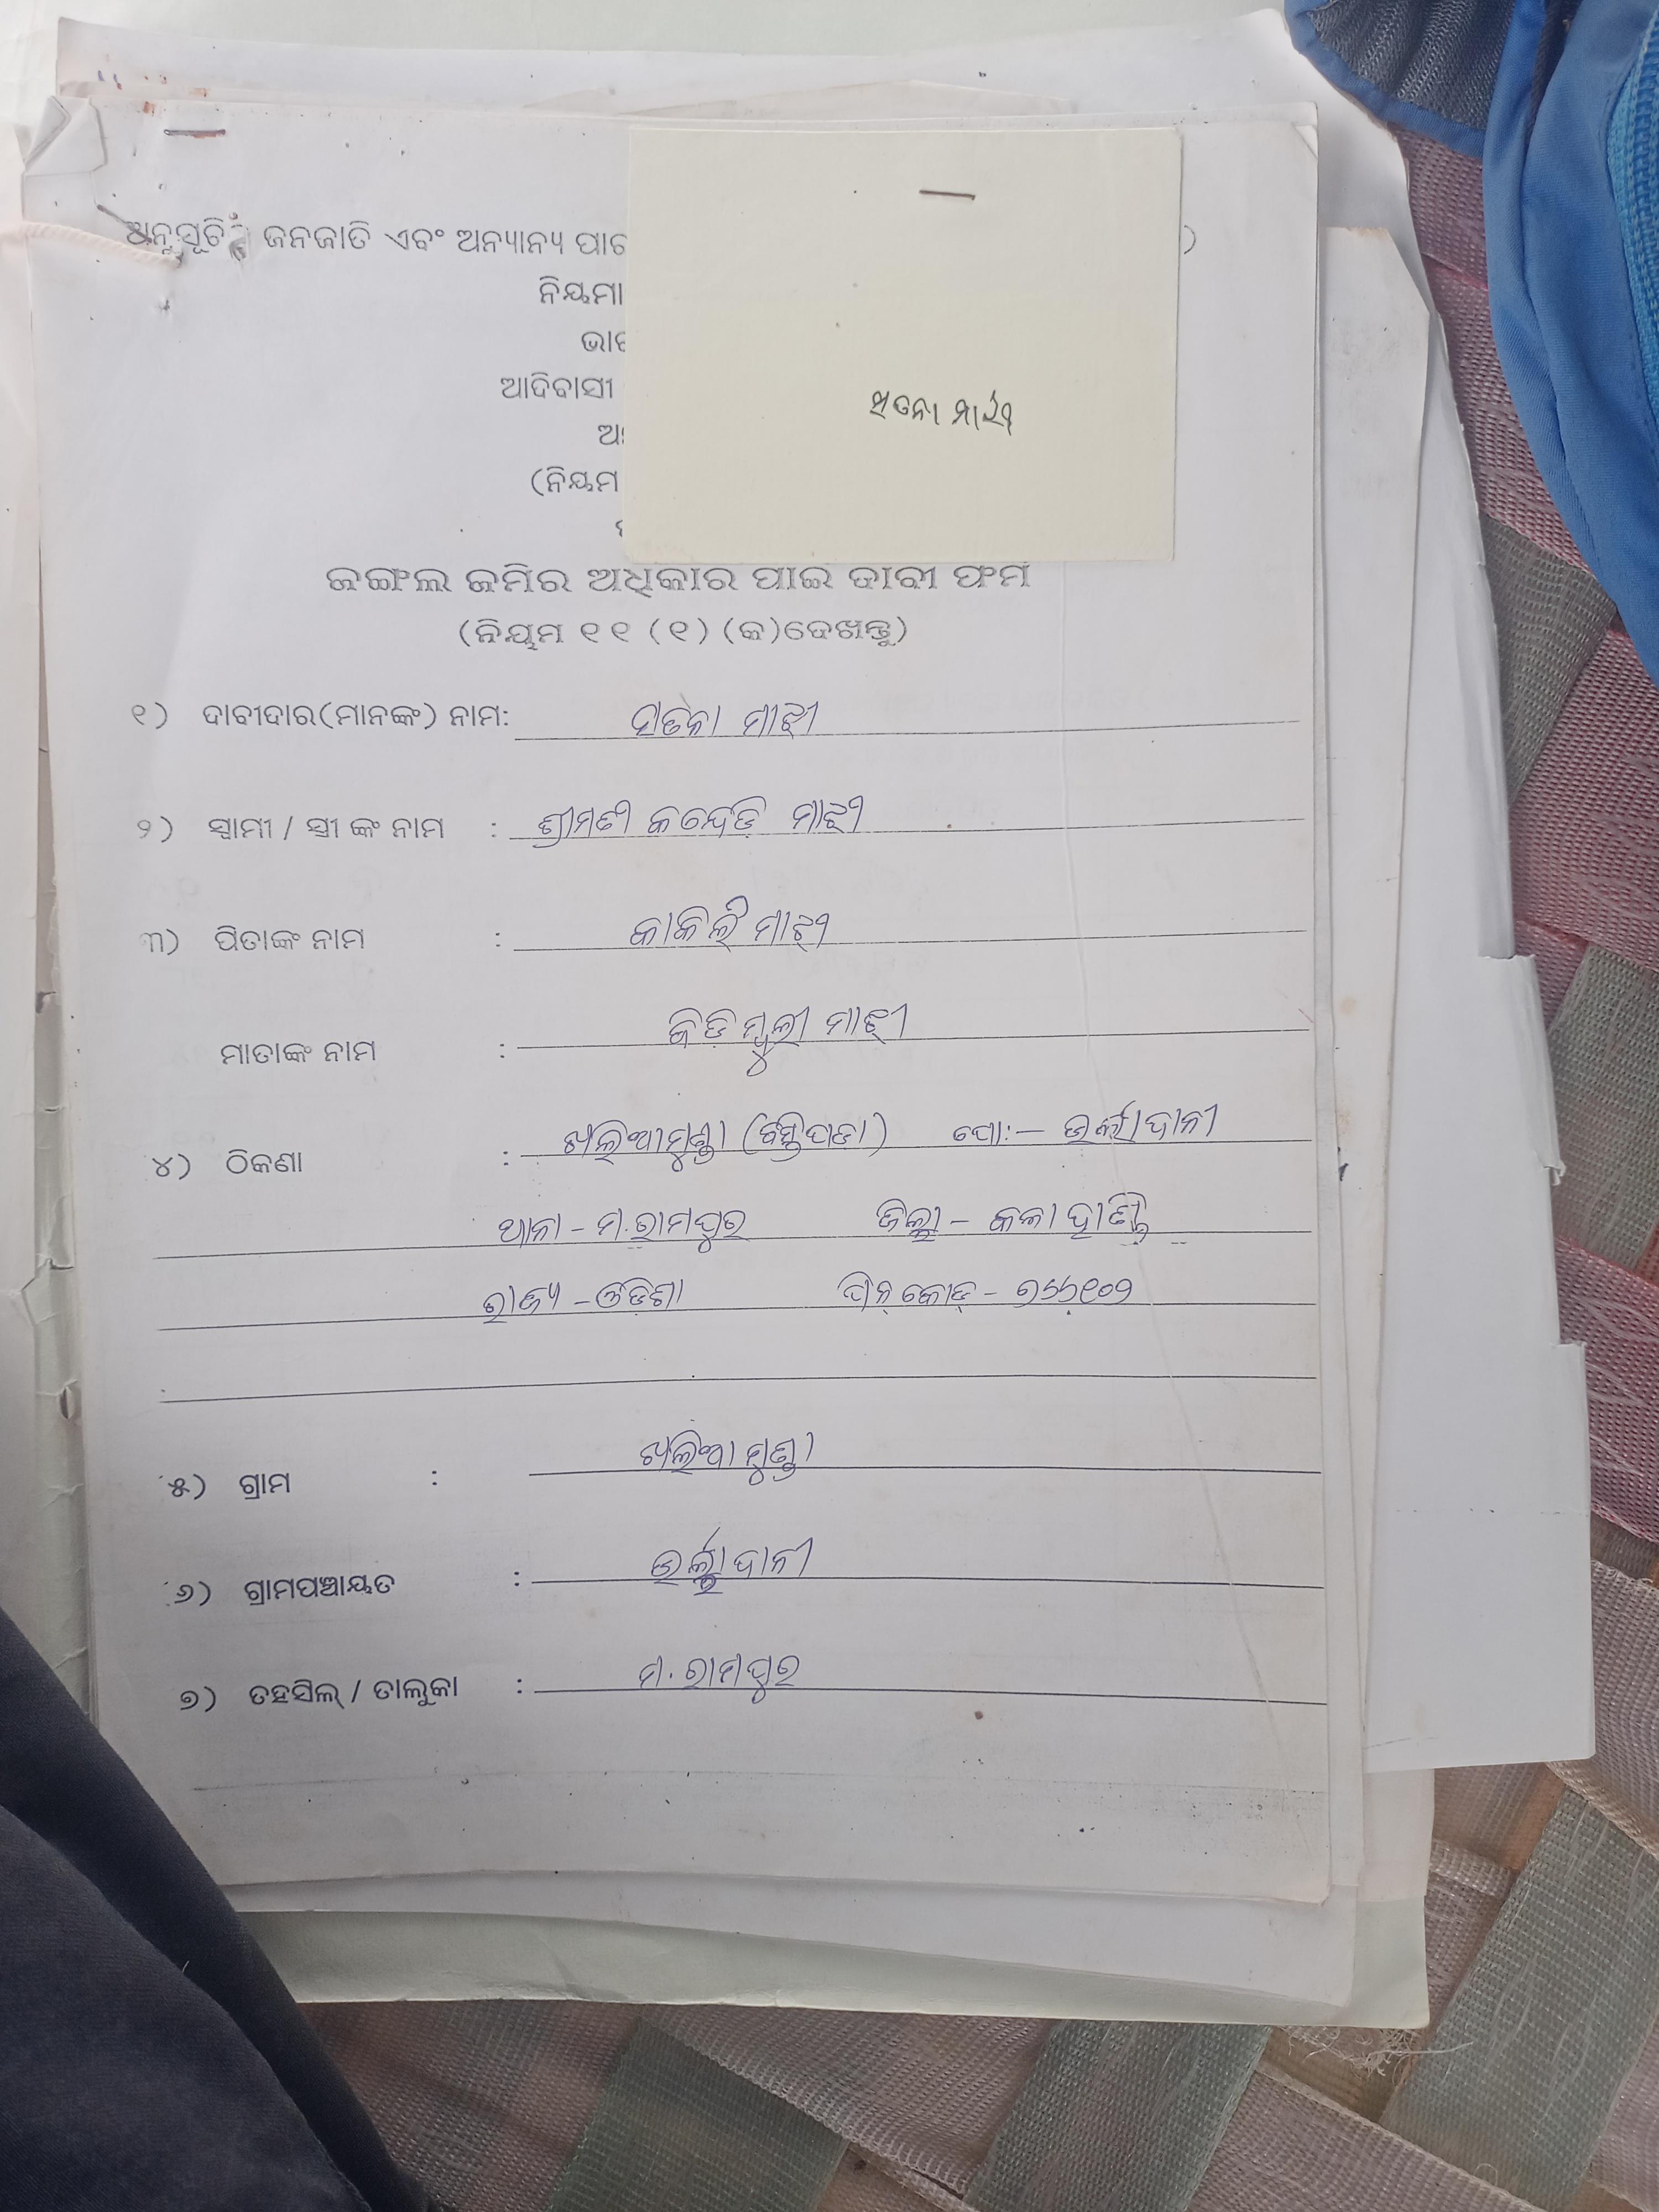 ଅନୁସୂଚିତ ଜନଜାତି ଏବଂ ଅନ୍ୟାନ୍ୟ ପାର
ନିୟମା
ଭାର
ଆଦିବାସୀ
(ନିୟମ
ମାଝୀ
ଜଙ୍ଗଲ ଜମିର ଅଧିକାର ପାଇ ଦାବୀ ଫର୍ମ
(ନିୟମ ୧୧ (୧) (କ)ଦେଖନ୍ତୁ)
୧) ଦାବୀଦାର(ମାନଙ୍କ) ନାମ: ମାଝୀ
୨) ସ୍ବାମୀ / ସ୍ତ୍ରୀ ଙ୍କ ନାମ : ଶ୍ରୀମତୀ ମାଝୀ
୩) ପିତାଙ୍କ ନାମ : ମାଝୀ
ମାତାଙ୍କ ନାମ : ମାଝୀ
୪) ଠିକଣା : ଖଲିଆମୁଣ୍ଡା ପୋ:- ଉର୍ଲାଦାନୀ
ଥାନା - ମ.ରାମପୁର ଜିଲ୍ଲା - କଳାହାଣ୍ଡି
ରାଜ୍ୟ - ଓଡିଶା ପିନ୍ କୋଡ୍ - ୭୬୬୧୦୨
୫) ଗ୍ରାମ : ଖଲିଆମୁଣ୍ଡା
୬) ଗ୍ରାମପଞ୍ଚାୟତ : ଉର୍ଲାଦାନୀ
୭) ତହସିଲ୍ / ତାଲୁକା : ମ. ରାମପୁର